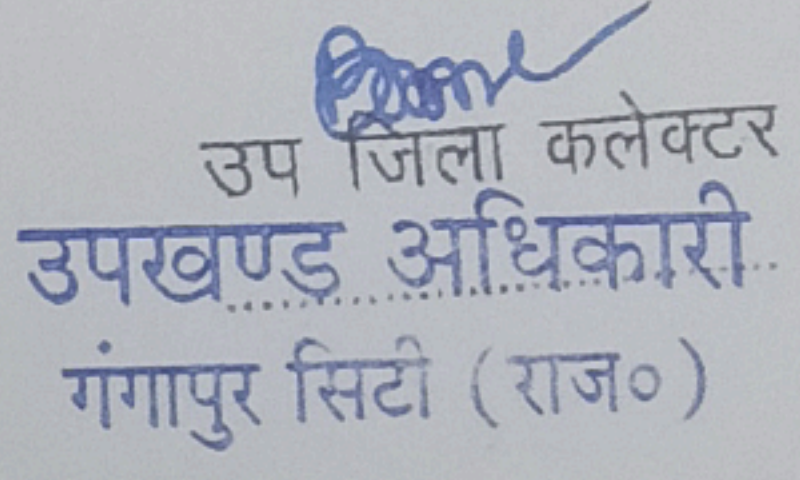 उप जिला कलेक्टर
उपखण्ड अधिकारी
गंगापुर सिटी (राज०)